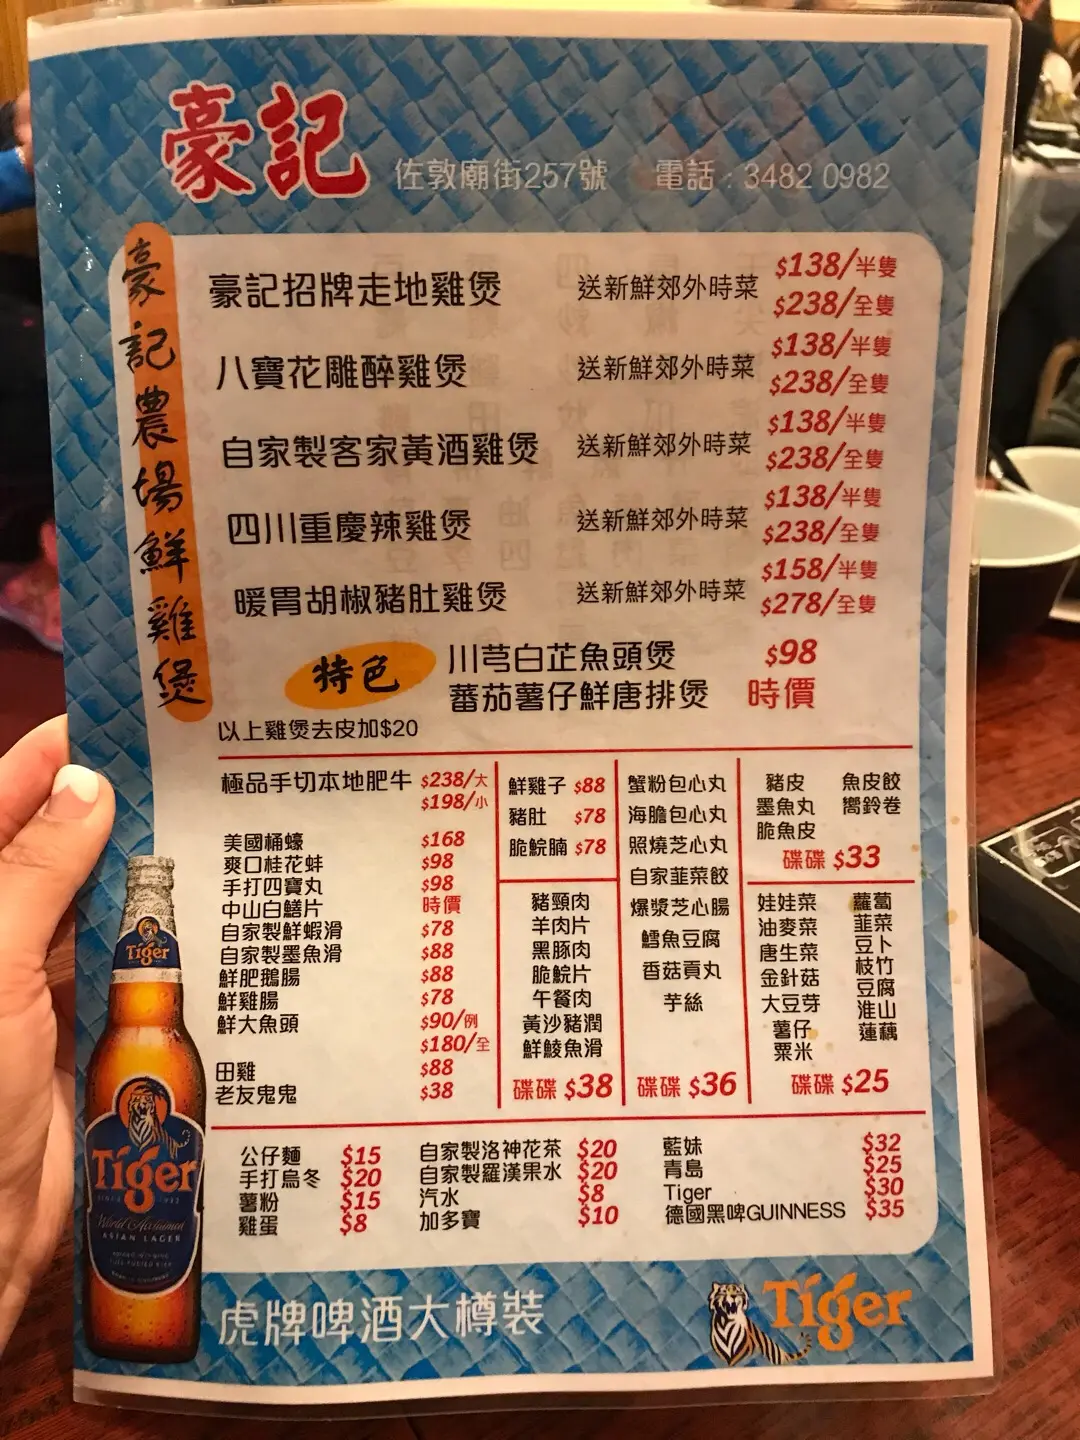 豪記
佐敦廟街257號 電話：3482 0982
豪記農場鮮雞煲
豪記招牌走地雞煲 送新鮮郊外時菜 $138/半隻
$238/全隻
八寶花雕醉雞煲 送新鮮郊外時菜 $138/半隻
$238/全隻
自家製客家黃酒雞煲 送新鮮郊外時菜 $138/半隻
$238/全隻
四川重慶辣雞煲 送新鮮郊外時菜 $138/半隻
$238/全隻
暖胃胡椒豬肚雞煲 送新鮮郊外時菜 $158/半隻
$278/全隻
特色
川芎白芷魚頭煲 $98
蕃茄薯仔鮮唐排煲 時價
以上雞煲去皮加$20
極品手切本地肥牛 $238/大
$198/小
美國桶蠔 $168
爽口桂花蚌 $98
手打四寶丸 $98
中山白鱔片 時價
自家製鮮蝦滑 $78
自家製墨魚滑 $88
鮮肥鵝腸 $88
鮮雞腸 $78
鮮大魚頭 $90/例
$180/全
田雞 $88
老友鬼鬼 $38
鮮雞子 $88
豬肚 $78
脆鯇腩 $78
豬頸肉
羊肉片
黑豚肉
脆鯇片
午餐肉
黃沙豬潤
鮮鯪魚滑
碟碟 $38
蟹粉包心丸
海膽包心丸
照燒芝心丸
自家韮菜餃
爆漿芝心腸
鱈魚豆腐
香菇貢丸
芋絲
碟碟 $36
豬皮 魚皮餃
墨魚丸 嚮鈴卷
脆魚皮
碟碟 $33
娃娃菜 蘿蔔
油麥菜 韮菜
唐生菜 豆卜
金針菇 枝竹
大豆芽 豆腐
薯仔 淮山
粟米 蓮藕
碟碟 $25
公仔麵 $15
手打烏冬 $20
薯粉 $15
雞蛋 $8
自家製洛神花茶 $20
自家製羅漢果水 $20
汽水 $8
加多寶 $10
藍妹 $32
青島 $25
Tiger $30
德國黑啤GUINNESS $35
Tiger
Tiger
World Acclaimed
ASIAN LAGER
虎牌啤酒大樽裝
Tiger